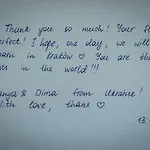 Thank you so much! Your fl
perfect! I hope, one day, we will
again in Kraków ♡ You are the
sts in the world!!!
anya & Dima from Ukraine!
With love, thanks ♡
13.